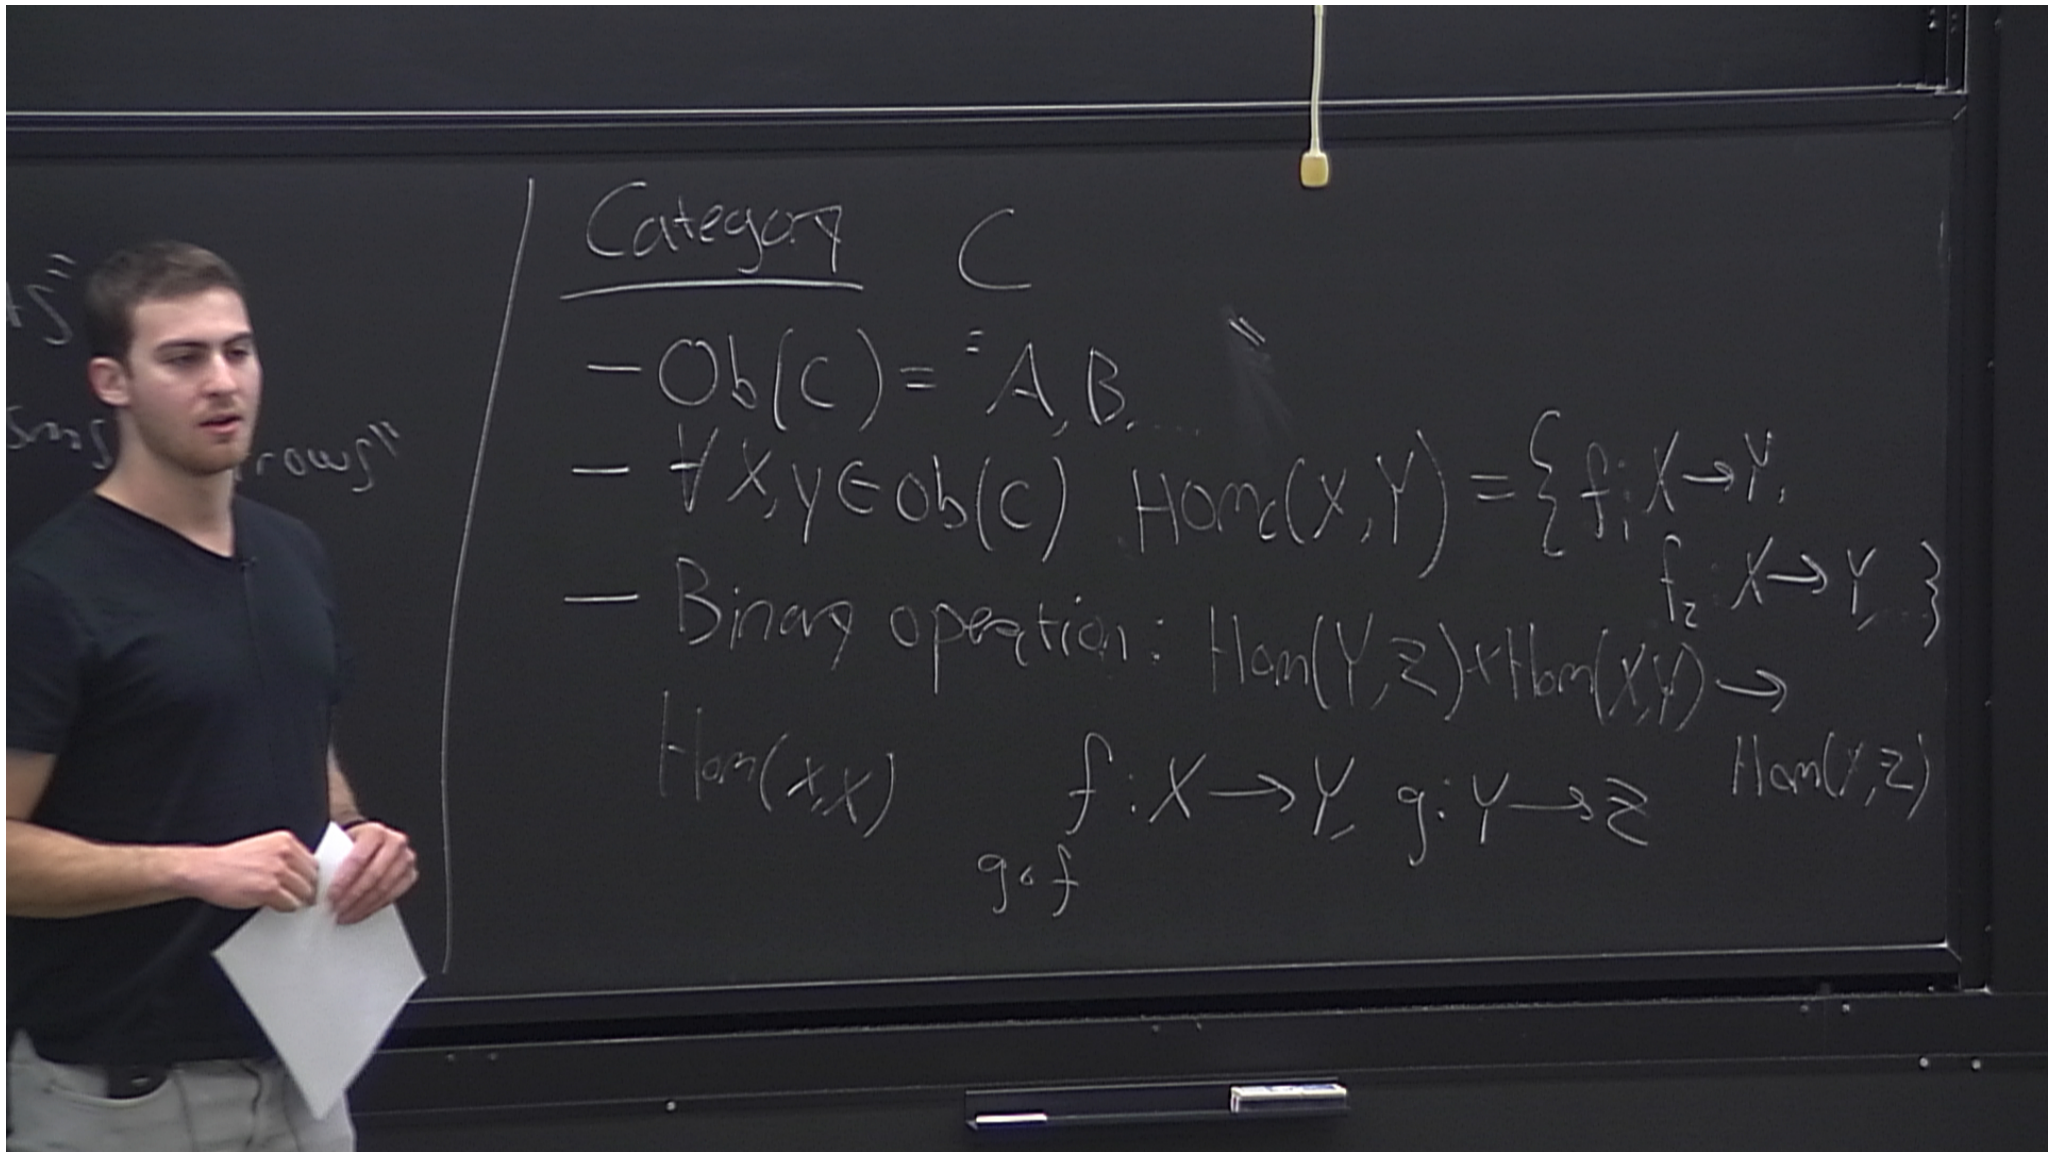 Category C
- Ob(C) = "A, B, ... "
- ∀ X, Y ∈ Ob(C) Hom_C(X, Y) = { f_1: X → Y,
f_2: X → Y, ... }
- Binary operation: Hom(Y, Z) × Hom(X, Y) →
Hom(X, X) f: X → Y, g: Y → Z
g∘f